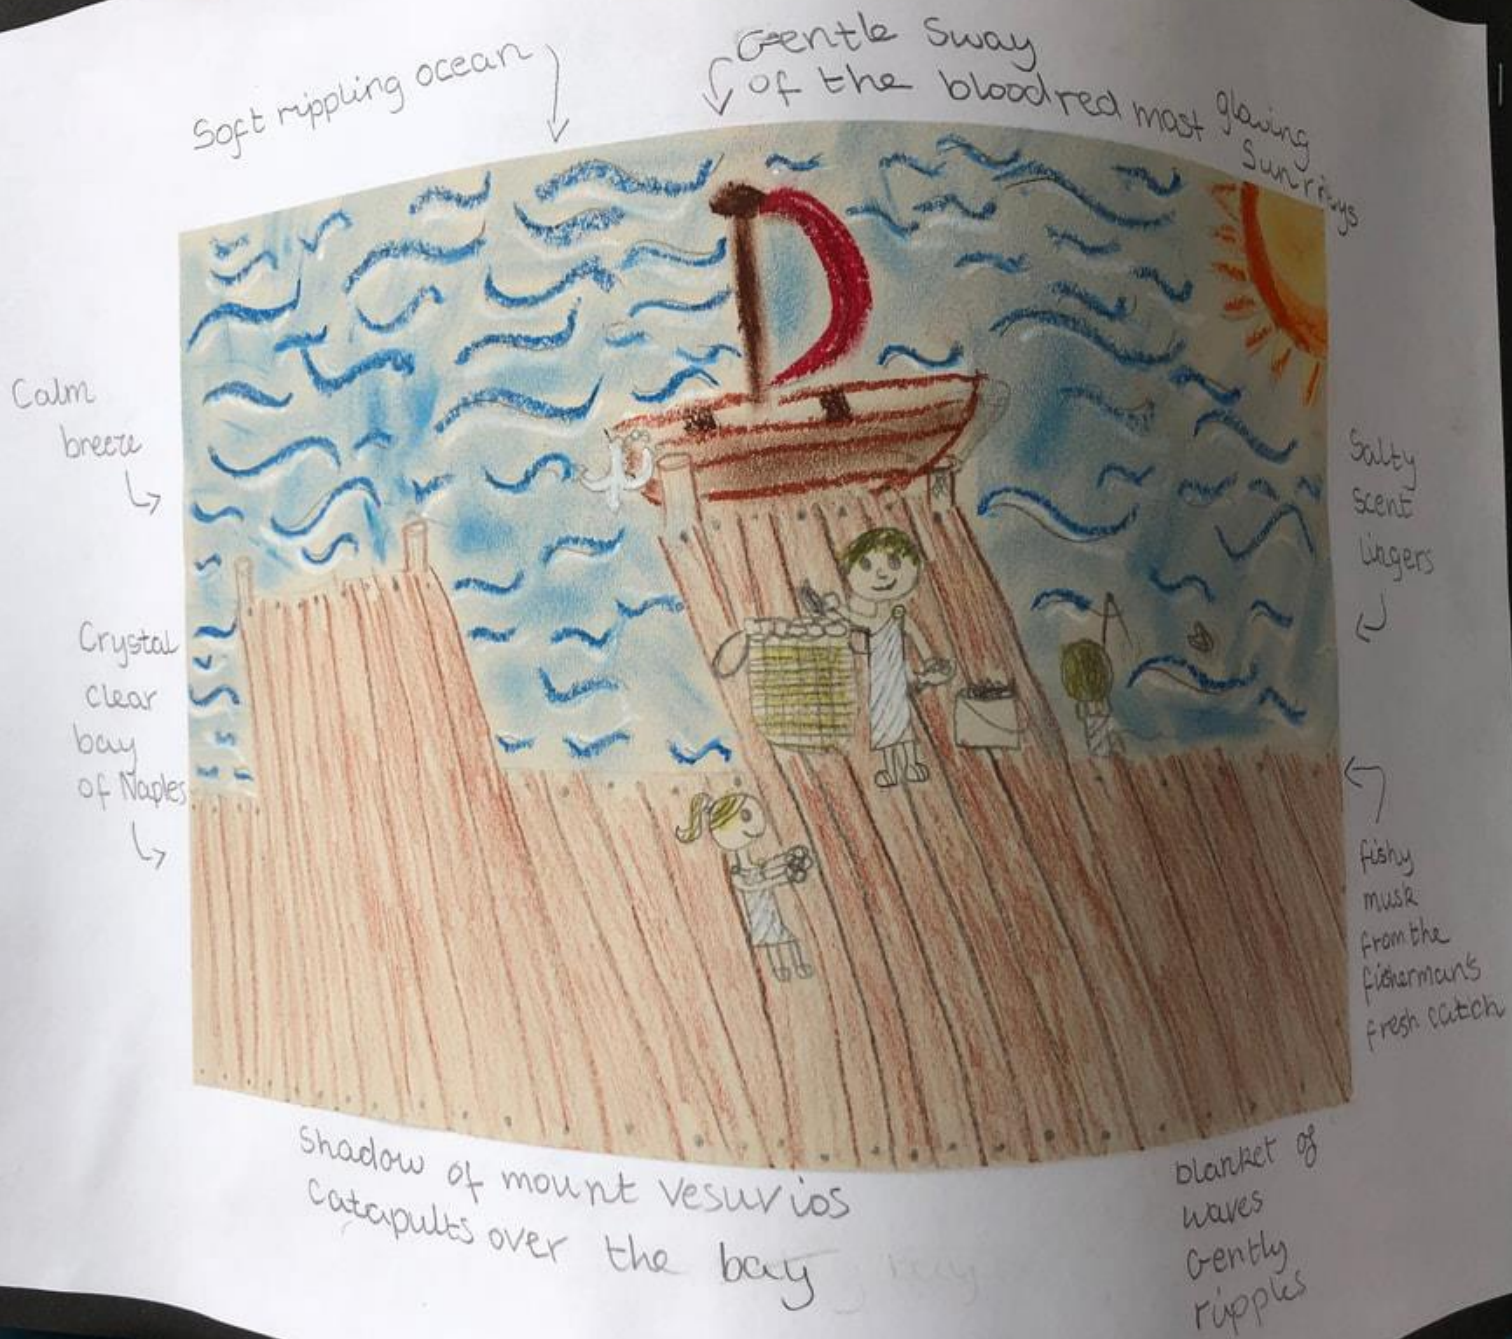 Soft rippling ocean
Gentle Sway
of the bloodred mast
glowing
Sunrays
Calm
breeze
Salty
scent
lingers
Crystal
clear
bay
of Naples
fishy
musk
from the
fisherman's
fresh catch
Shadow of mount vesuvios
catapults over the bay
blanket of
waves
Gently
ripples